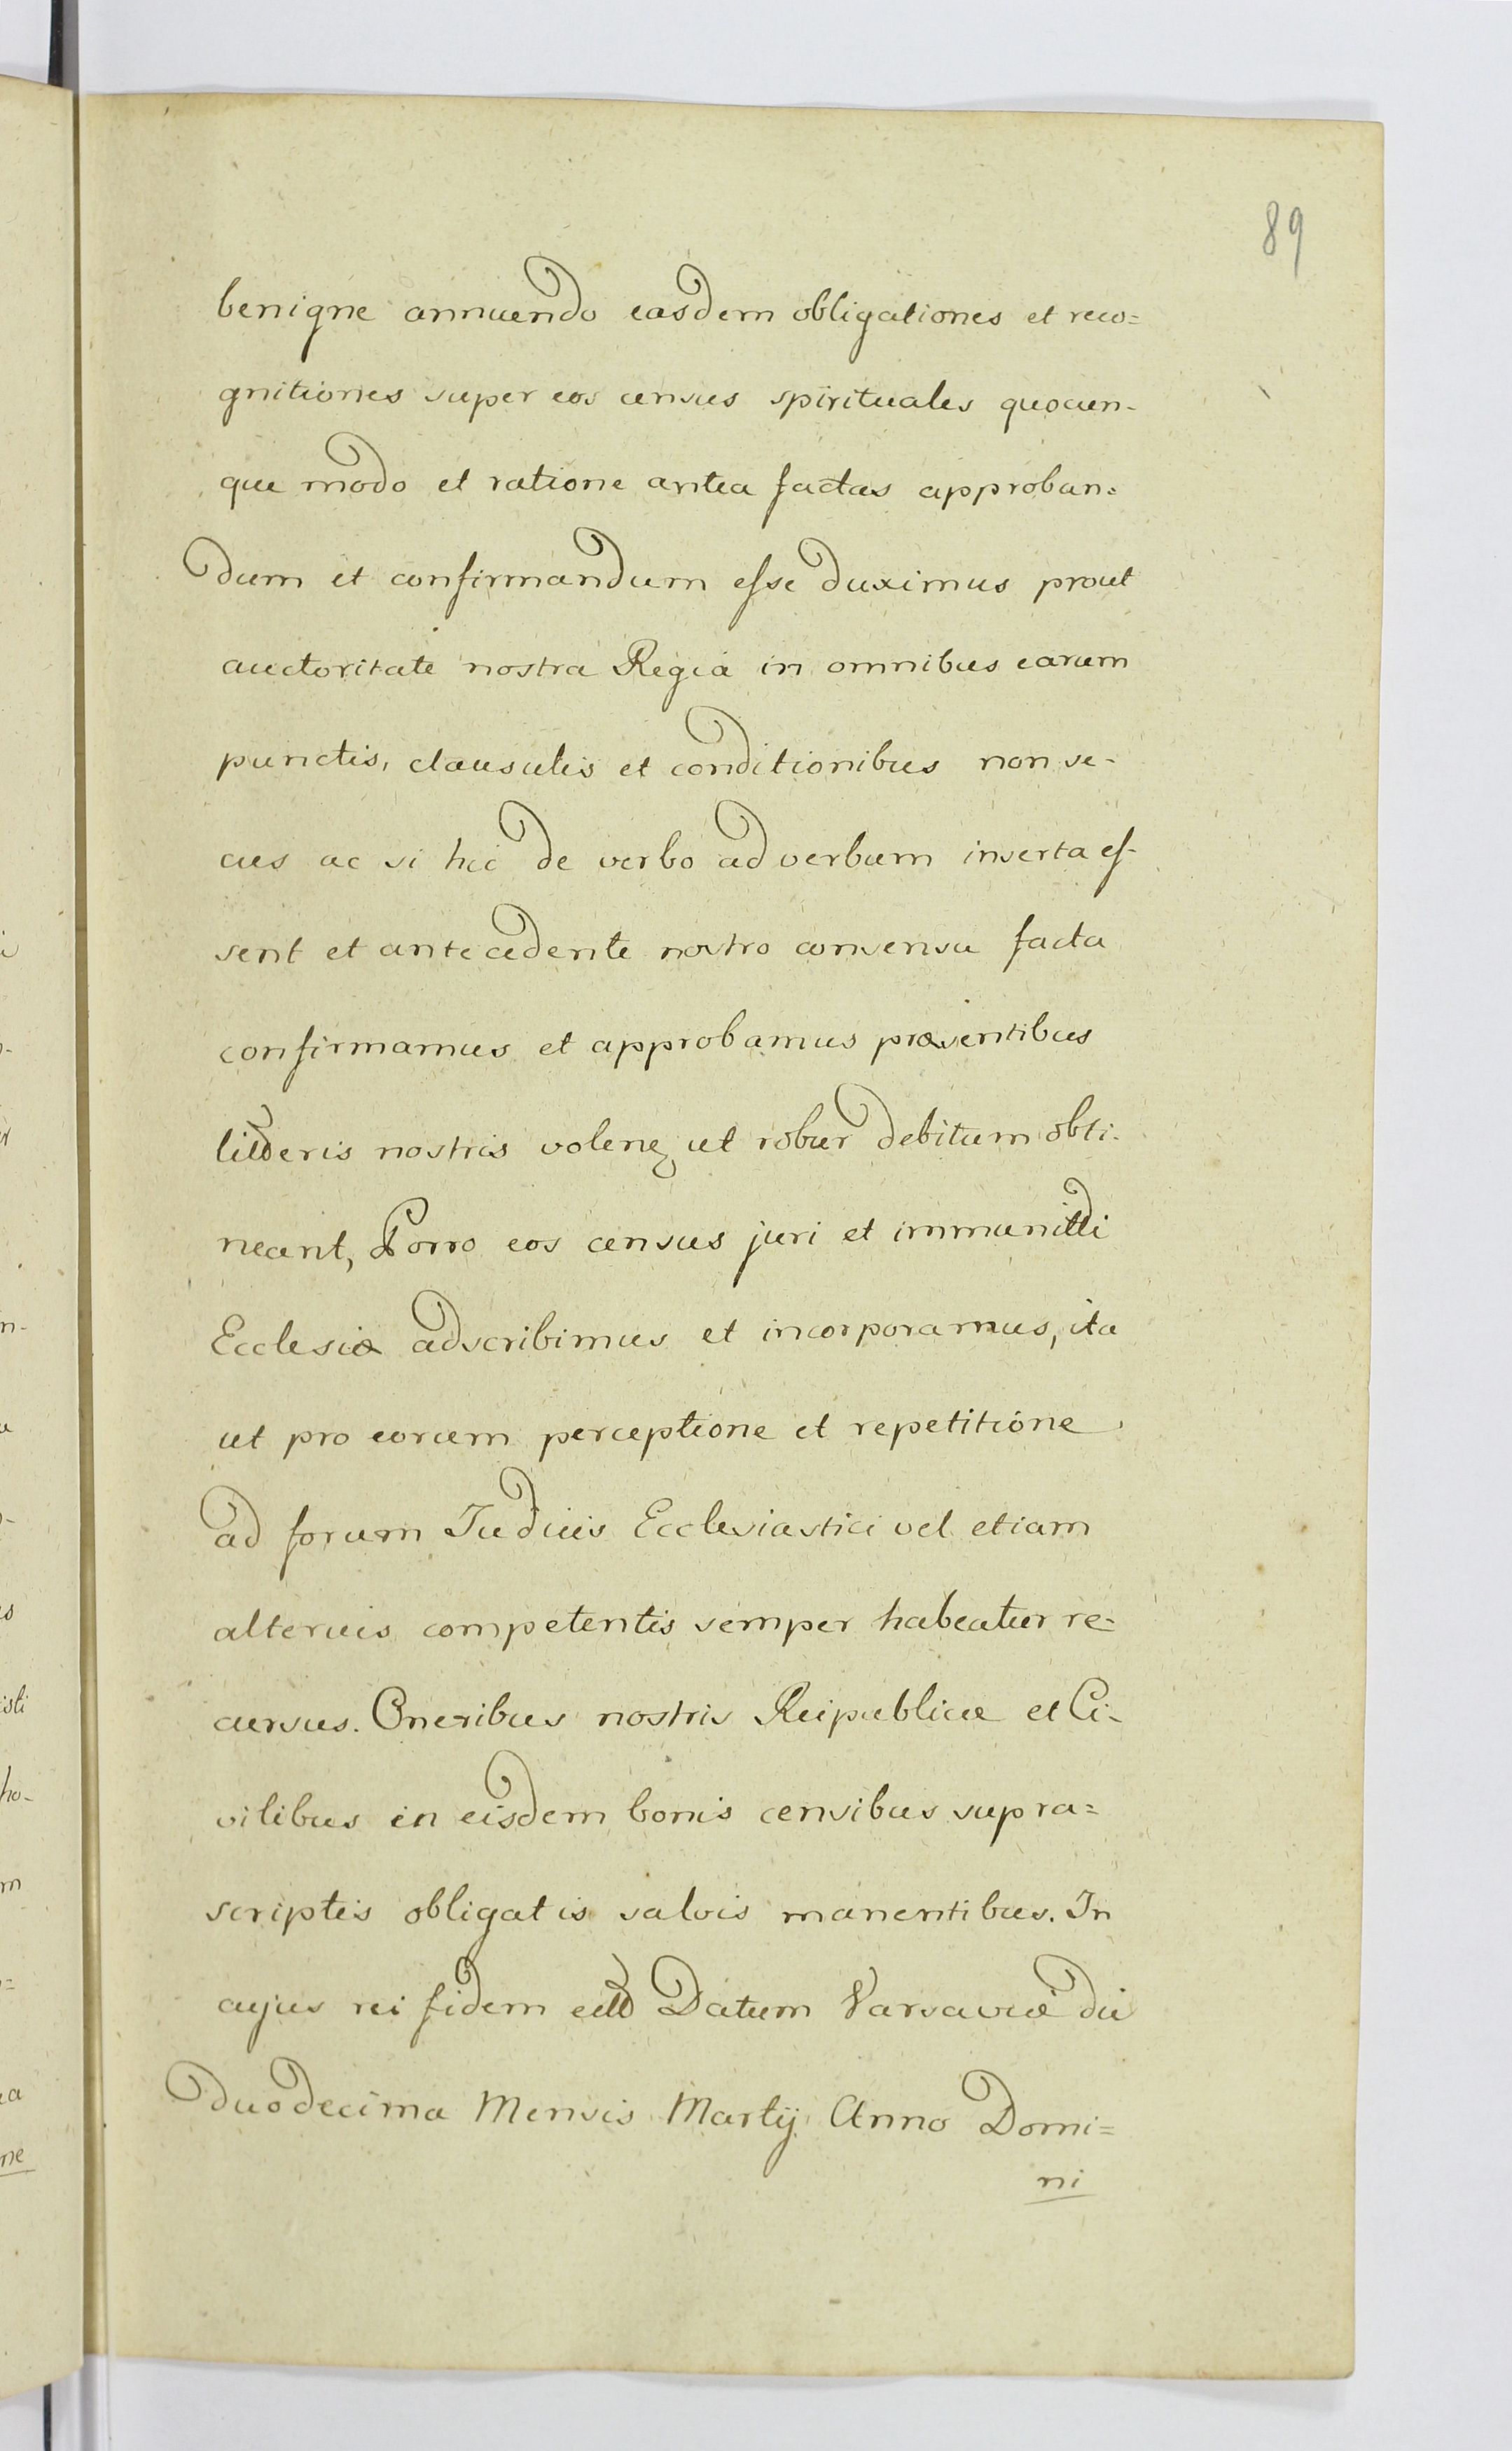 89
benigne annuendo easdem obligationes et reco=
gnitiones super eos census spirituales quocun-
que modo et ratione antea factas approban=
dum et confirmandum esse duximus prout
auctoritate nostra Regia in omnibus earum
punctis, clausulis et conditionibus non se-
cus ac si hic de verbo ad verbum inserta es-
sent et antecedente nostro consensu facta
confirmamus et approbamus præsentibus
litteris nostris volen. ut robur debitum obti-
neant, Porro eos census juri et immunitti
Ecclesiæ adscribimus et incorporamus, ita
ut pro eorum perceptione et repetitione
ad forum Judicis Ecclesiastici vel etiam
alterius competentis semper habeatur re=
cursus. Oneribus nostris Reipublicæ et Ci-
vilibus in eisdem bonis censibus supra=
scriptis obligatis salvis manentibus. In
cujus rei fidem Datum Varsaviæ die
duodecima Mensis Martij Anno Domi=
ni